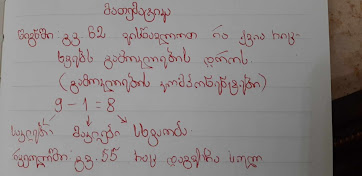 მათემატიკა
წიგნში: გვ. 62. ვისწავლოთ რა ქვია რიც-
ხვებს გამოკლების დროს.
(გამოკლების კომპონენტები)
9 - 1 = 8
საკლები მაკლები სხვაობა.
რვეულში: გვ. 55 რაც დაგვრჩა სულ